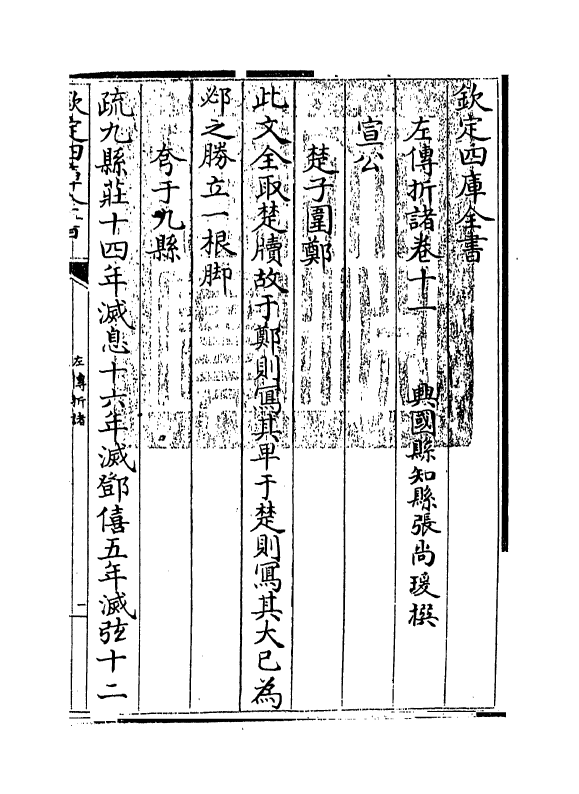 欽定四庫全書
左傳折諸卷十一 興國縣知縣張尚瑗撰
宣公
楚子圍鄭
此文全取楚牘故于鄭則寫其卑于楚則寫其大已為
邲之勝立一根脚
夸于九縣
疏九縣莊十四年滅息十六年滅鄧僖五年滅弦十二
欽定四庫全書
左傳折諸
一